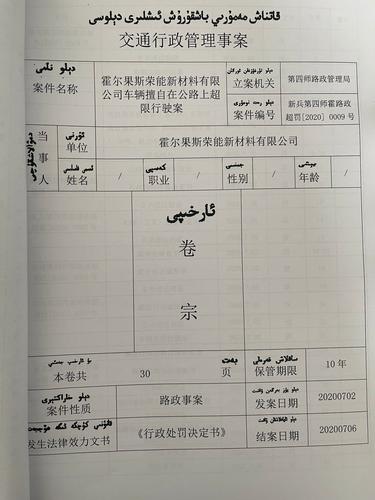 قاتناش مەمۇرىي باشقۇرۇش ئىشلىرى دېلوسى
交通行政管理事案
دېلو نامى
案件名称
霍尔果斯荣能新材料有限
公司车辆擅自在公路上超
限行驶案
立案机关
第四师路政管理局
دېلو رەت نومۇرى
案件编号
新兵第四师霍路政
超罚[2020] 0009 号
当
事
人
ئورنى
单位
霍尔果斯荣能新材料有限公司
ئىسمى فامىلىسى
姓名
/
كەسپى
职业
/
جىنسى
性别
/
يېشى
年龄
/
ئارخىپى
卷
宗
مۇ ئارخىپ جەمئىي
本卷共
30
بەت
页
ساقلاش قەرەلى
保管期限
10 年
دېلو خاراكتېرى
案件性质
路政事案
دېلو يۈز بەرگەن ۋاقىت
发案日期
20200702
发生法律效力文书
《行政处罚决定书》
结案日期
20200706